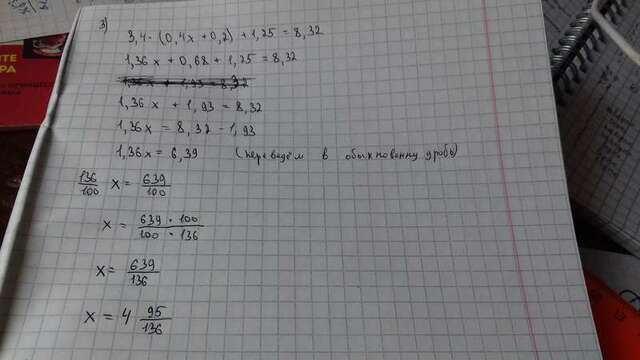 3)
3,4 · (0,4x + 0,2) + 1,25 = 8,32
1,36x + 0,68 + 1,25 = 8,32
1,36x + 1,93 = 8,32
1,36x + 1,93 = 8,32
1,36x = 8,32 - 1,93
1,36x = 6,39 (переведём в обыкновенну дробь)
136/100 x = 639/100
x = 639 · 100 / 100 · 136
x = 639/136
x = 4 95/136